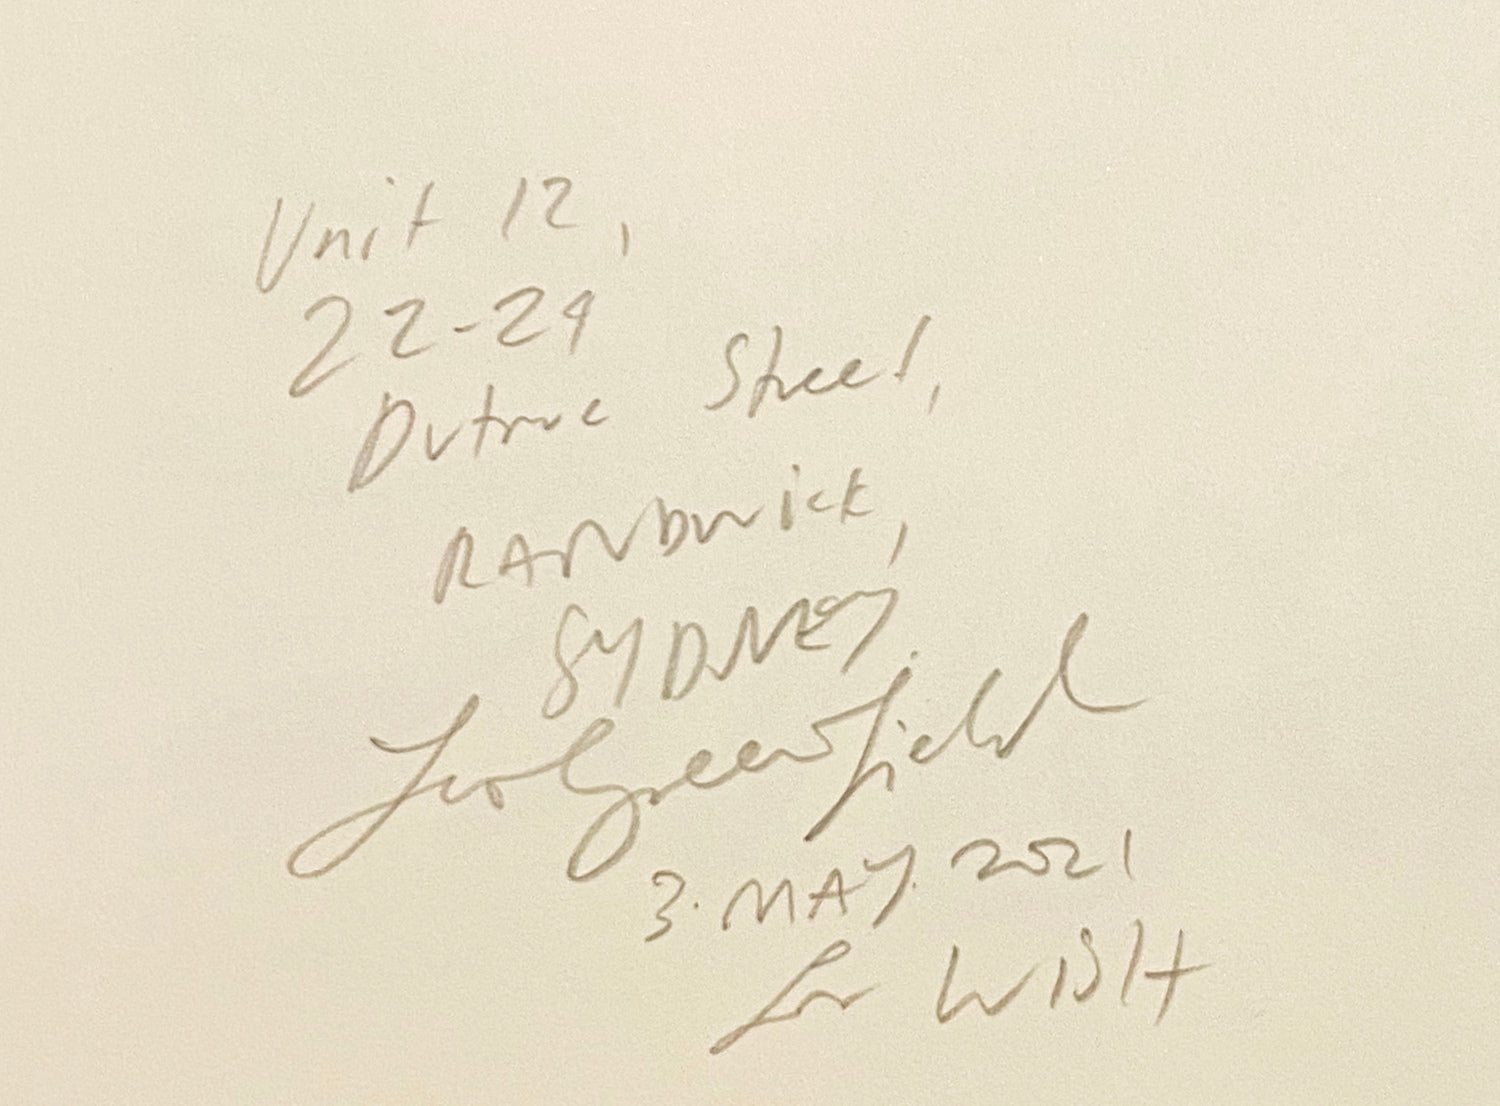 Unit 12,
22-24
Dutruc Street,
RANDWick,
SYDNEY.
Leo Greenfield
3. MAY. 2021
for WISH